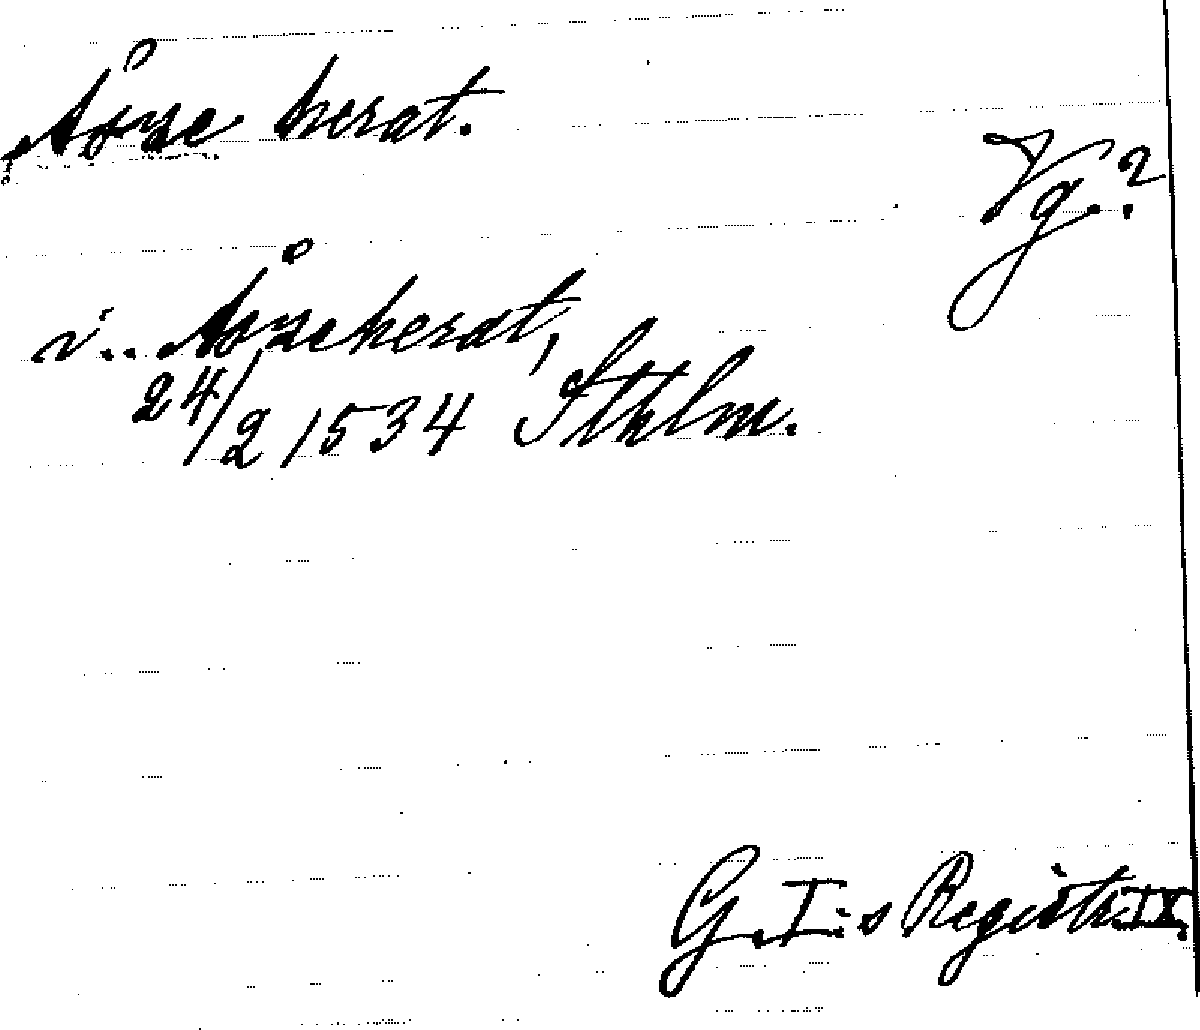 Åsze herat.
Vg.?
i.. Åszeherat,
24/2 1534 Sthlm.
G. I:s Registr. IX.